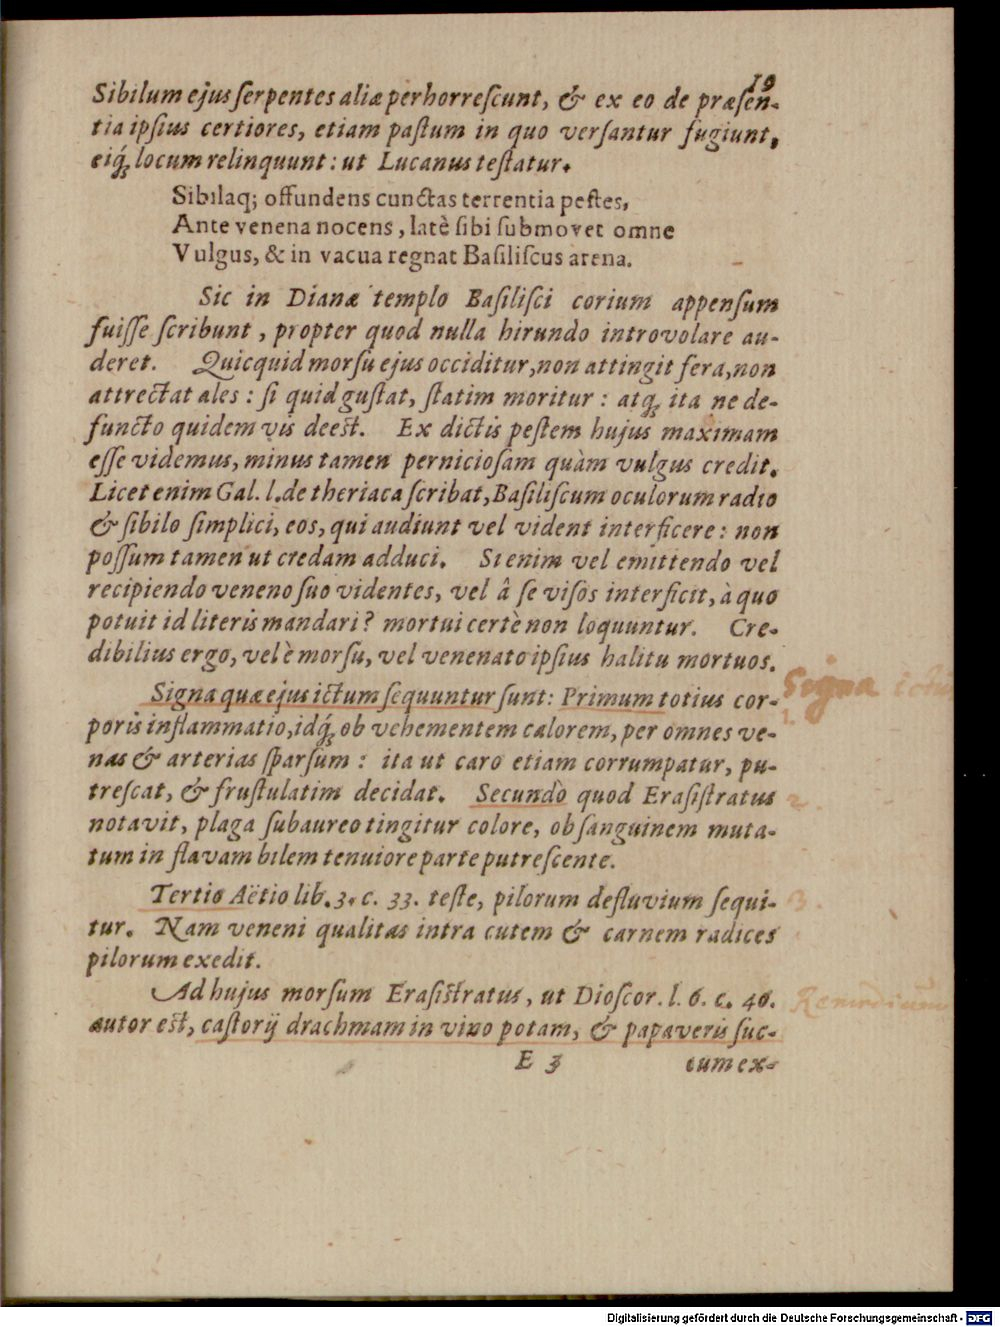 19
Sibilum ejus ſerpentes aliæ perhorreſcunt, & ex eo de præſen-
tia ipſius certiores, etiam paſtum in quo verſantur fugiunt,
eiq́; locum relinquunt: ut Lucanus teſtatur.
Sibilaq; offundens cunctas terrentia peſtes,
Ante venena nocens, latè ſibi ſubmovet omne
Vulgus, & in vacua regnat Baſiliſcus arena.
Sic in Dianæ templo Baſiliſci corium appenſum
fuiſſe ſcribunt, propter quod nulla hirundo introvolare au-
deret. Quicquid morſu ejus occiditur, non attingit fera, non
attrectat ales: ſi quid guſtat, ſtatim moritur: atq́; ita ne de-
functo quidem vis deeſt. Ex dictis peſtem hujus maximam
eſſe videmus, minus tamen pernicioſam quàm vulgus credit.
Licet enim Gal. l. de theriaca ſcribat, Baſiliſcum oculorum radio
& ſibilo ſimplici, eos, qui audiunt vel vident interficere: non
poſſum tamen ut credam adduci. Si enim vel emittendo vel
recipiendo veneno ſuo videntes, vel â ſe viſos interficit, à quo
potuit id literis mandari? mortui certè non loquuntur. Cre-
dibilius ergo, vel è morſu, vel venenato ipſius halitu mortuos.
Signa quæ ejus ictum ſequuntur ſunt: Primum totius cor-
Signa ictus
1.
poris inflammatio, idq́; ob vehementem calorem, per omnes ve-
nas & arterias ſparſum: ita ut caro etiam corrumpatur, pu-
treſcat, & fruſtulatim decidat. Secundò quod Eraſiſtratus
2.
notavit, plaga ſubaureo tingitur colore, ob ſanguinem muta-
tum in flavam bilem tenuiore parte putreſcente.
Tertio Aëtio lib. 3. c. 33. teſte, pilorum defluvium ſequi-
3.
tur. Nam veneni qualitas intra cutem & carnem radices
pilorum exedit.
Ad hujus morſum Eraſiſtratus, ut Dioſcor. l. 6. c. 40.
Remedium
autor eſt, caſtorij drachmam in vino potam, & papaveris ſuc-
E 3 cum ex-
Digitalisierung gefördert durch die Deutsche Forschungsgemeinschaft - DFG